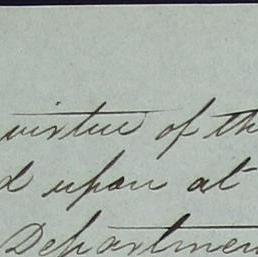 virtue of th
d upon at
Departmen